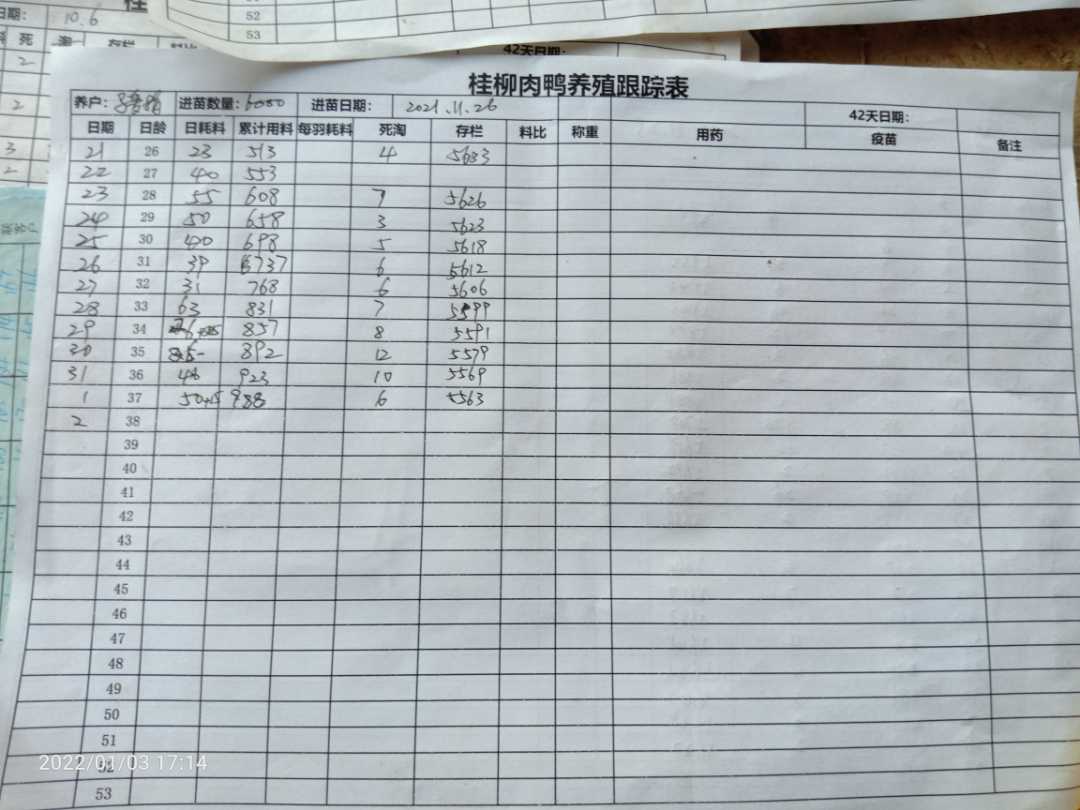 日期: 10.6
死 淘 存栏 料比
2
2
3
2
52
53
42天日期:
桂柳肉鸭养殖跟踪表
养户: 进苗数量: 6080 进苗日期: 2021.11.26 42天日期:
日期 日龄 日耗料 累计用料 每羽耗料 死淘 存栏 料比 称重 用药 疫苗 备注
21 26 23 513 4 5633
22 27 40 553
23 28 55 608 7 5626
24 29 50 658 3 5623
25 30 40 698 5 5618
26 31 39 737 6 5612
27 32 31 768 6 5606
28 33 63 831 7 5599
29 34 857 8 5591
30 35 892 12 5579
31 36 923 10 5569
1 37 50+15 988 6 5563
2 38
39
40
41
42
43
44
45
46
47
48
49
50
51
52
53
2022/01/03 17:14